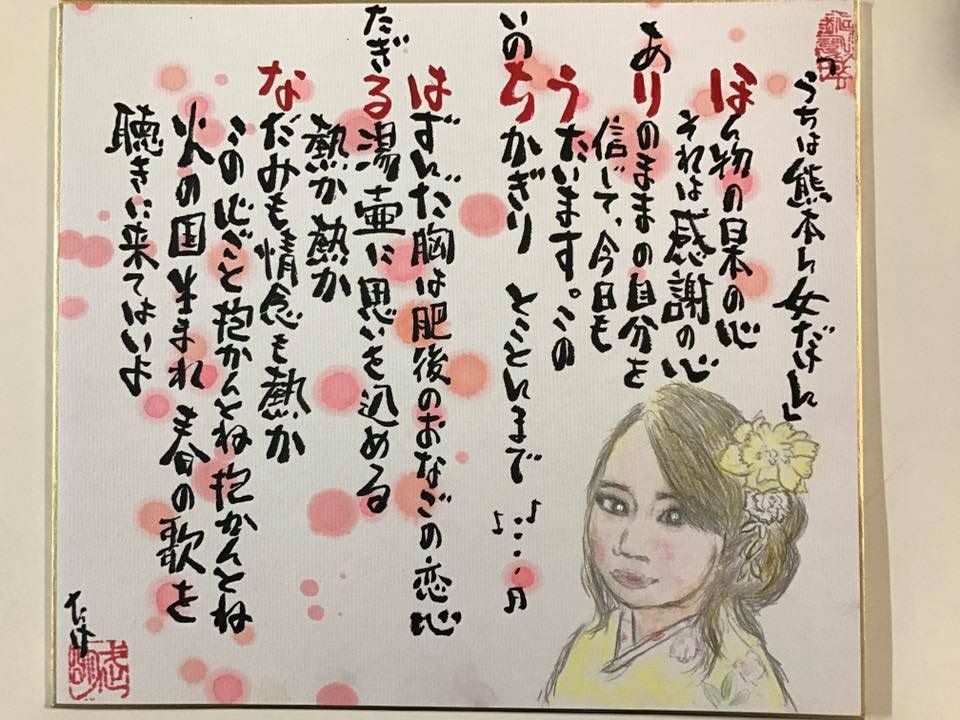 「うちは熊本ん女だけん」
ほん物の日本の心
それは感謝の心
ありのままの自分を
信じて、今日も
うたいます。この
いのちかぎり とことんまで
はずんだ胸は肥後のおなごの恋心
たぎる湯壷に思いを込める
熱か熱か
なだみも情念も熱か
この心ごと抱かんとね抱かんとね
火の国生まれ 春の歌を
聴きに来てはいよ
たけ